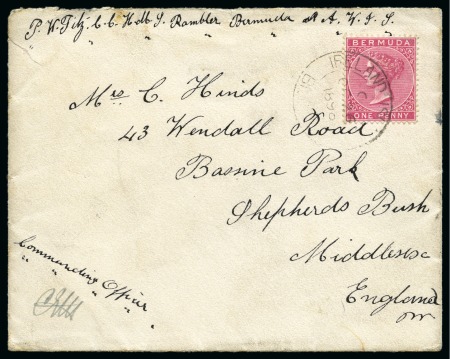 H.M.S. Rambler Bermuda N.A. & W.I.S.
BERMUDA
ONE PENNY
IRELAND
Mrs C. Hinds
43 Wendall Road
Bassine Park
Shepherds Bush
Middlesex
England
Commanding Officer
" "